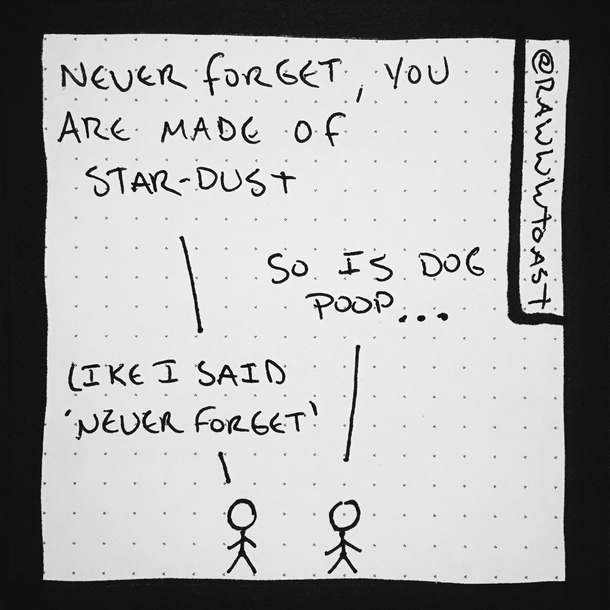 NEVER FORGET, YOU
ARE MADE OF
STAR-DUST
SO IS DOG
POOP...
LIKE I SAID
'NEVER FORGET'
@RAWWWTOAST